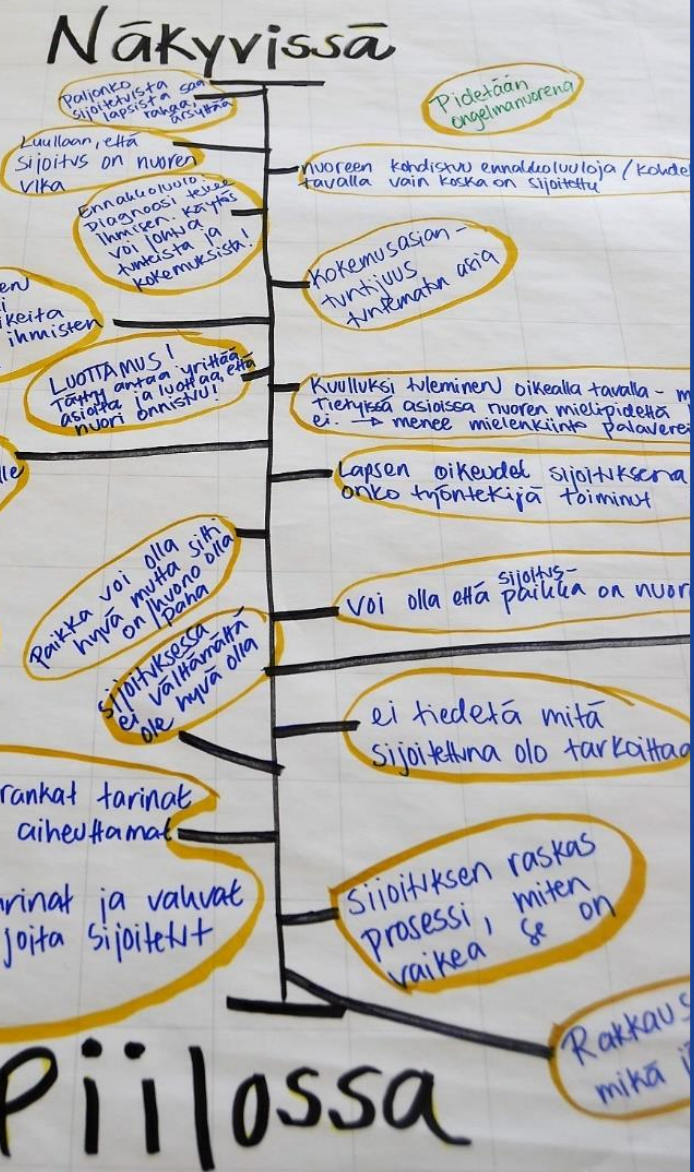 Näkyvissä
Paljonko
sijoitetuista
lapsista saa
rahaa,
ärsyttää
Pidetään
ongelmanuorena
Luullaan, että
sijoitus on nuoren
vika
nuoreen kohdistuu ennakkoluuloja / kohde
tavalla vain koska on sijoitettu
Ennakkoluulo:
Diagnoosi tekee
ihmisen. Käytös
voi johtua
tunteista ja
kokemuksista!
Kokemusasian-
tuntijuus
tuntematon asia
en
i
keita
ihmisten
LUOTTAMUS!
Täytyy antaa yrittää
asioita ja luottaa, että
nuori onnistuu!
Kuulluksi tuleminen oikealla tavalla - m
Tietyissä asioissa nuoren mielipidettä
ei. → menee mielenkiinto palaverei
lle
Lapsen oikeudet sijoituksena
onko työntekijä toiminut
Paikka voi olla
hyvä mutta silti
on huono olla
/ paha
voi olla että sijoitus-
paikka on nuor
Sijoituksessa
ei välttämättä
ole hyvä olla
ei tiedetä mitä
sijoitettuna olo tarkoittaa
rankat tarinat
aiheuttamat
arinat ja vahvat
joita sijoitetut
Sijoituksen raskas
prosessi, miten
vaikea se on
Rakkaus
mikä i
Piilossa